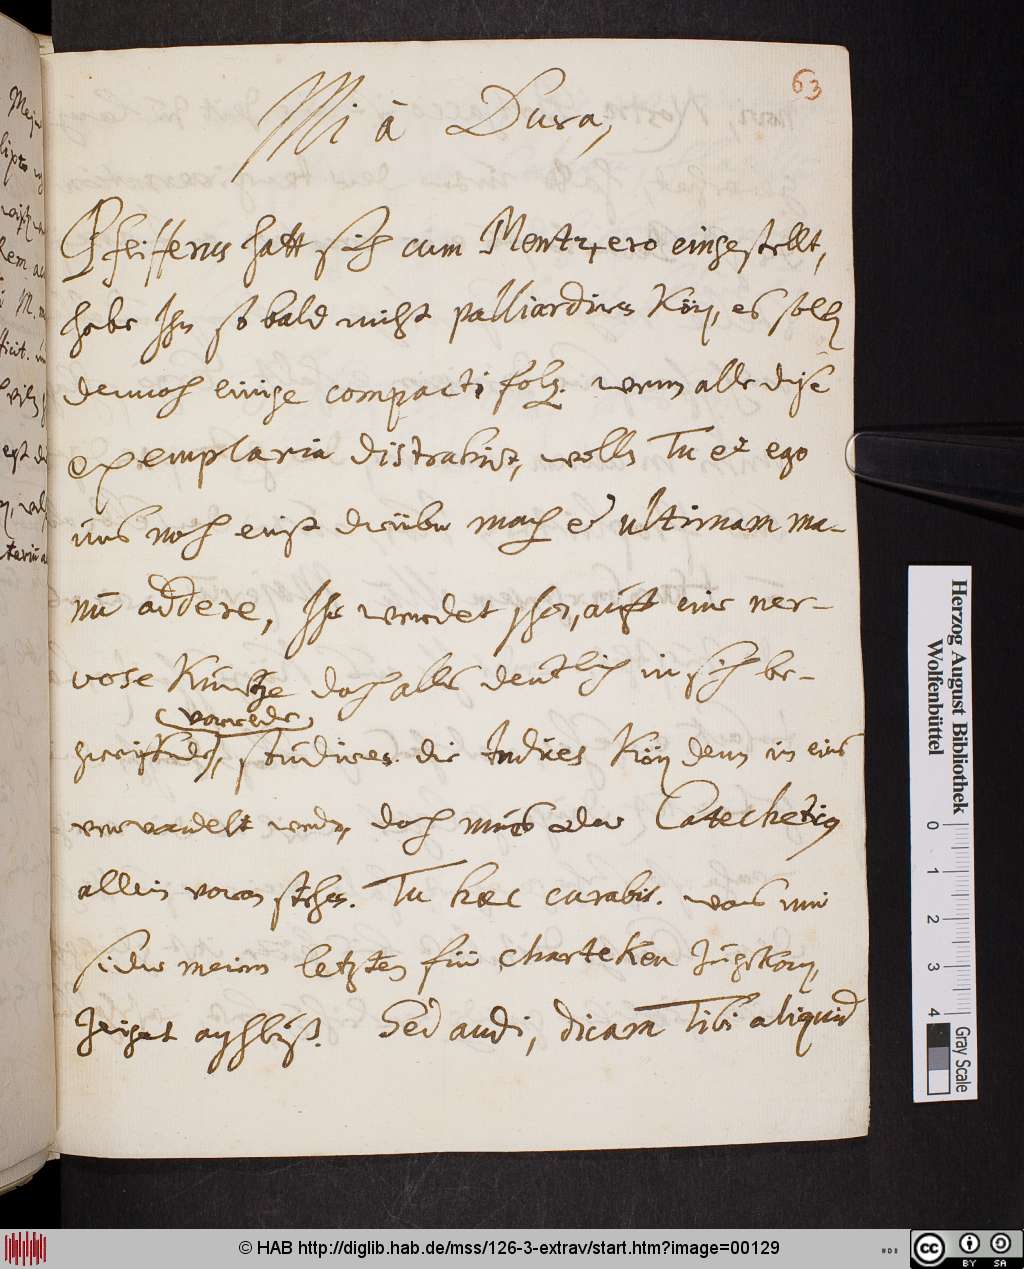 63
Mi à Dura,
Pfeifferus hatt sich cum Mentzero eingestellt,
habe Ihn so bald nicht palliardiren Kön, es solln
dennoch einige compacti folg. wenn alle dise
exemplaria distrahirt, wolln Tu et ego
uns noch einst drüber mach et ultimam ma-
nū addere, Ihr werdet schon, auff eine ner-
vose Kurtze doch alles deutlich in sich be-
vorrede
greiffende, studires. die Indices Kön denn in eins
verwandelt werdn, doch mus der Catechetig
allein voran stehen. Tu haec curabis. was mir
sider meim letzten für charteken Zugekom,
Zeiget Sed audi, dicam Tibi aliquid
Herzog August Bibliothek
Wolfenbüttel
0 1 2 3 4
Gray Scale
© HAB http://diglib.hab.de/mss/126-3-extrav/start.htm?image=00129
cc BY SA